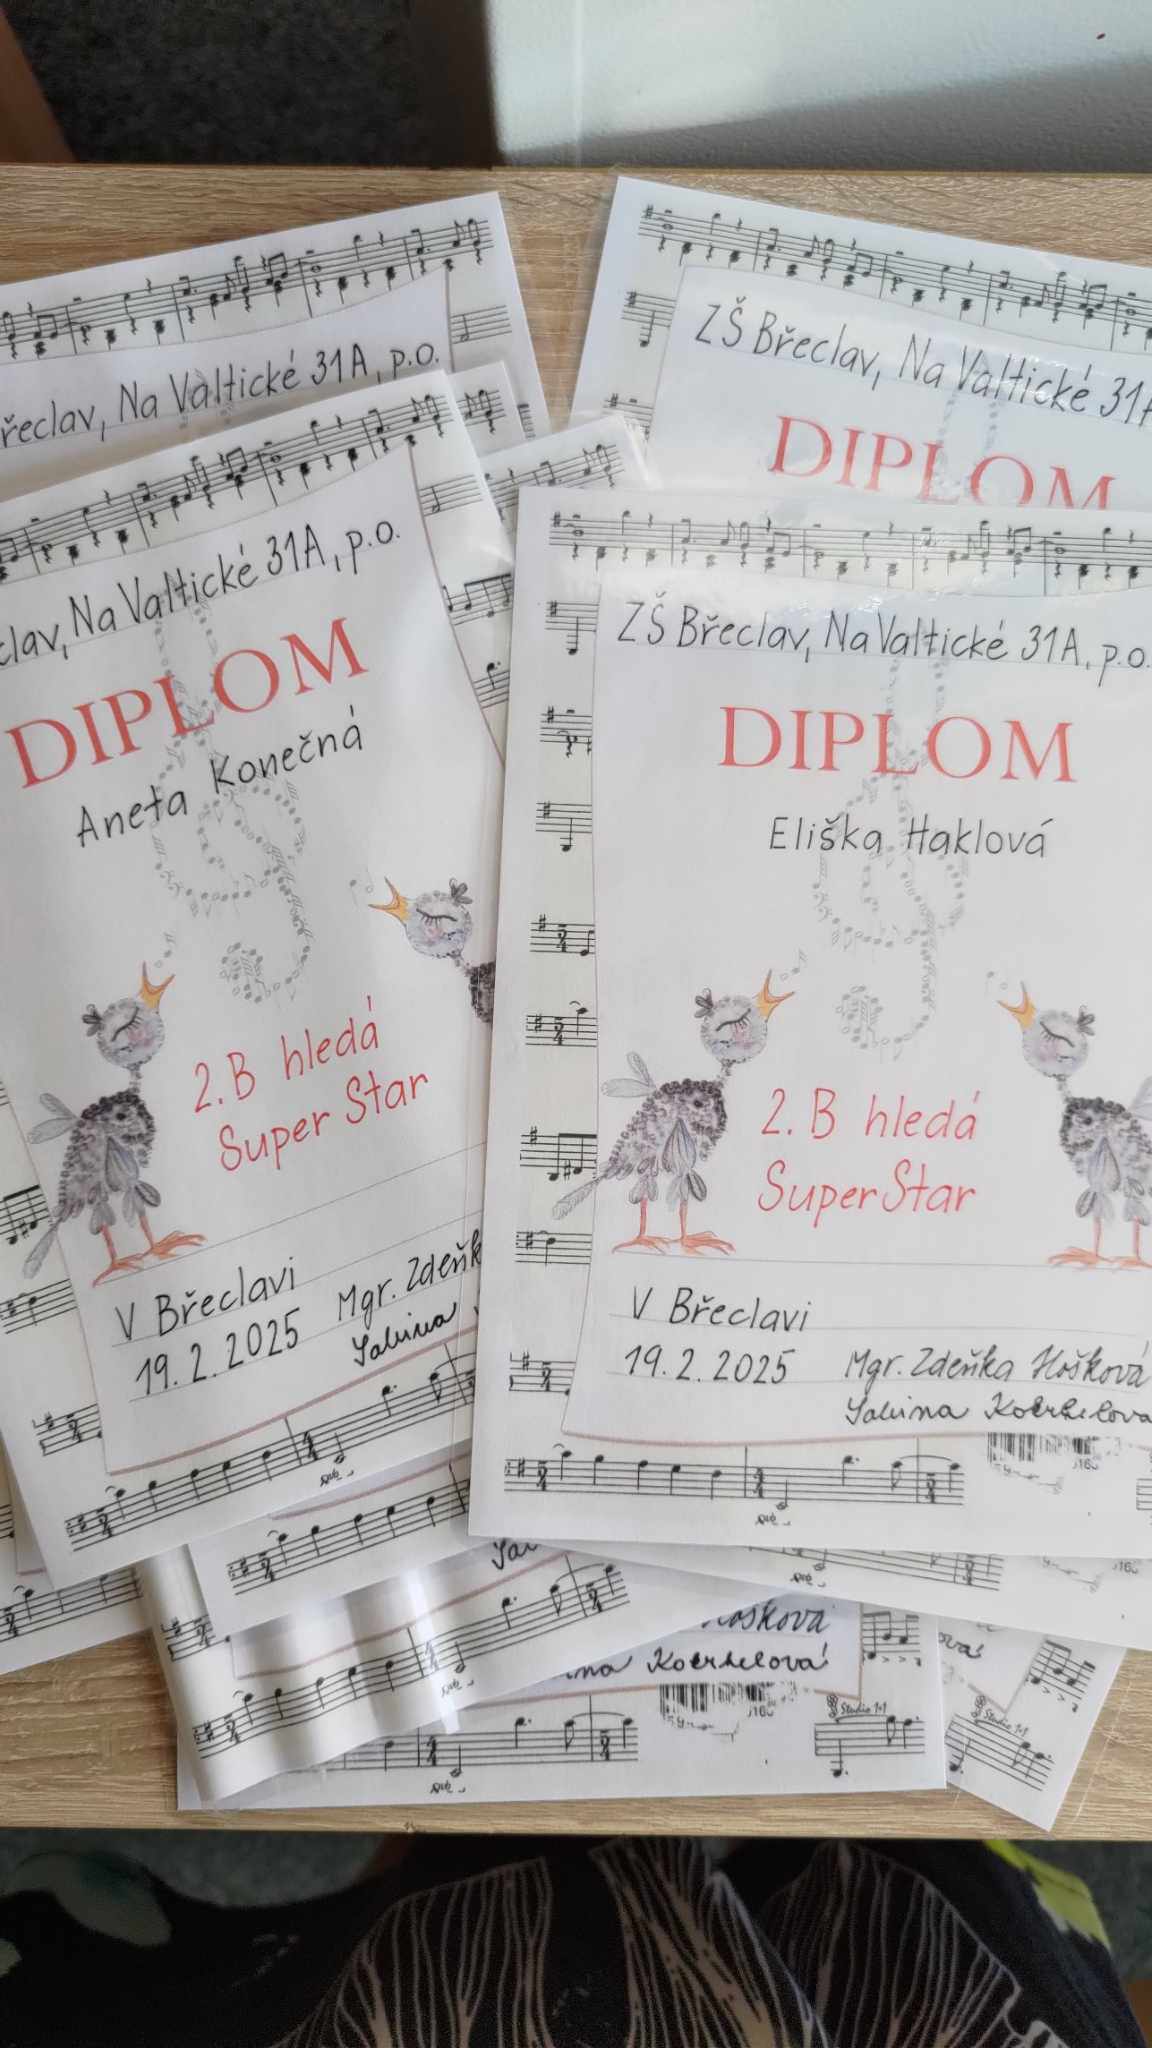 řeclav, Na Valtické 31A, p.o.
ZŠ Břeclav, Na Valtické 31A
DIPLOM
clav, Na Valtické 31A, p.o.
DIPLOM
Aneta Konečná
2.B hledá
Super Star
V Břeclavi
19.2.2025 Mgr. Zdeňk
Sabina
ZŠ Břeclav, Na Valtické 31A, p.o.
DIPLOM
Eliška Haklová
2.B hledá
SuperStar
V Břeclavi
19.2.2025 Mgr. Zdeňka Hošková
Sabina
Hošková
Studio 1+1
ová
Studio 1+1